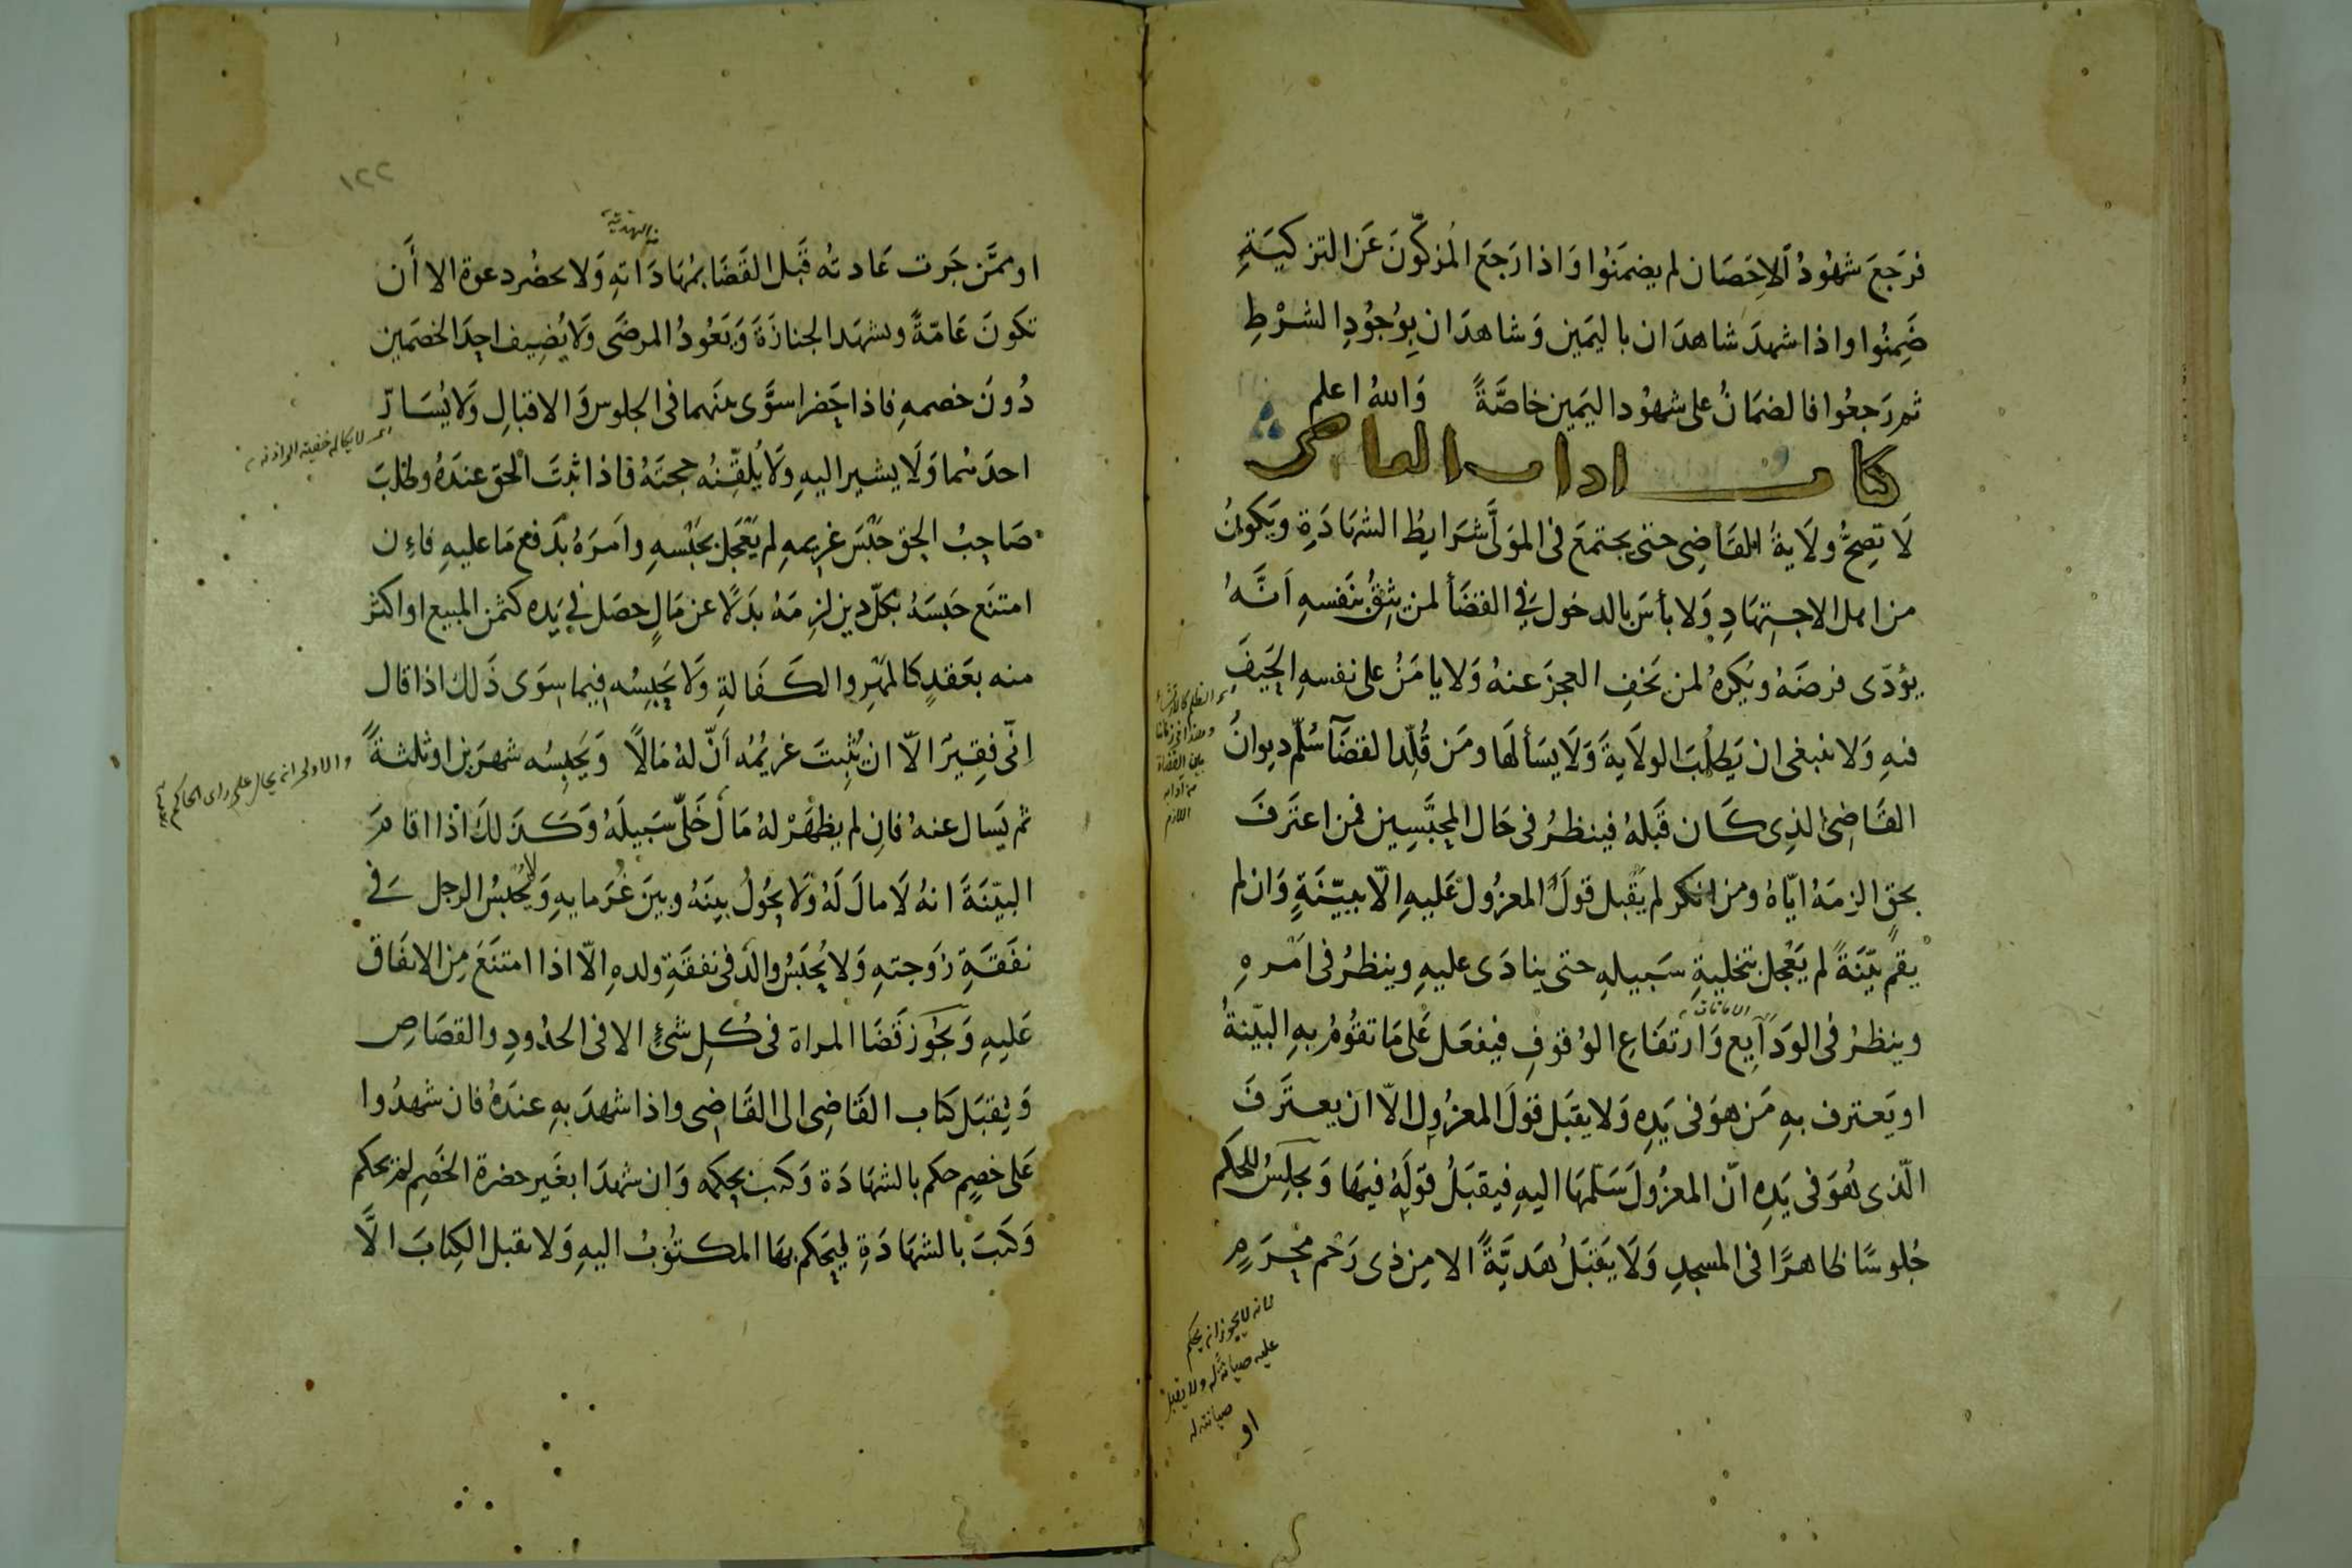 فرَجَعَ شهُودُ الاِحصَان لم يضمَنُوا وَاذا رَجَعَ المُزكّونَ عَن التزكيَةِ
ضَمِنُوا واذا شهدَ شاهدَان باليَمين وَشاهدَان بِوُجُودِ الشرْطِ
ثم رَجعُوا فالضمَانُ على شهُود اليَمين خاصَّةً وَالله اعلم
كتاب اداب القاضى
لَا تصِحُّ ولَايةُ القاضِى حتى يجتمعَ فى المَوَلَّى شرَايطُ الشهَادَةِ ويَكونُ
من اهل الاجتِهَادِ وَلا بأسَ بالدخول فِي القضَأ لمن يثِقُ بنَفسهِ اَنَّهُ
يؤدّى فرضَهُ ويُكرهُ لمن يَخفِ العجزَ عنهُ وَلا يامَنُ على نفسهِ الحَيفَ
فيهِ وَلا ينبغى ان يَطلُبَ الولَايةَ وَلَا يسَألهَا ومَن قُلِّد القضَآ سُلّم ديوانُ
القَاضِى الذِى كَان قَبلهُ فينظرُ فى حَال المحبَّسِين فمن اعترَفَ
بحقٍ الزمَهُ ايّاهُ ومن انكر لم يَقبل قولَ المعزُول عَليهِ الّا ببيّنَةٍ وَان لم
يقم بيّنَةً لم يَعْجل بتخليةِ سَبيلهِ حتى ينادَى عليهِ وينظرُ فى اَمْرهِ
الامانات
وينظرُ فى الوَدَآيِع وَارتفَاعِ الوُقوُفِ فيفعَل عَلى مَا تقوُمُ بهِ البيّنةُ
او يَعترف بهِ مَن هوَ فى يَدِهِ وَلا يقبَل قولَ المعزُولِ الّا ان يعترَفَ
الّذى هُوَ فى يَدِهِ انّ المعزُولَ سَلّمهَا اليهِ فيقبَلُ قَولَهُ فيهَا وَيجلِسُ للحكم
جُلوسًا ظاهرًا فى المسجدِ وَلَا يَقبَلُ هَديَّةً الا مِن ذى رَحْم محرَمٍ
لانه لا يجوز ان يحكم
عليه صيانةً له ولا يقبل
صيانته له
او
١٢٢
الهدية
او ممَّن جَرت عَادته قَبل القَضَا بمُهَادَاتهِ وَلا يحضُر دعوة الا أَن
تكونَ عَامّةً ويشهَد الجنازَةَ وَيَعُودُ المرضَى وَلا يُضيف احِدَ الخصَمين
دُونَ خصمهِ فاذا حَضرا سوَّى بينَهما فى الجلوس وَالاقبالِ وَلا يُسَارّ
احدَهما وَلَا يشير اليهِ وَلا يُلقّنهُ حجتَهُ فاذا ثبتَ الحَق عندَهُ وطلبَ
صَاحِبُ الحق حَبْسَ غريمهِ لم يَعْجَل بحَبْسهِ واَمرَهُ بدَفع مَا عليهِ فاِن
امتنَع حَبسَهُ بكلّ دين لزِمَهُ بدَلًا عن مَالٍ حصَل فِي يَدِه كثمن المبيع او اكثر
منه بعَقدٍ كالمَهْرِ والكَفَالةِ وَلَا يَحْبِسُه فيما سِوَى ذَلك اذا قال
اِنّى فقِيرٌ الّا ان يُثْبِتَ غريمُهُ اَنّ لهُ مَالًا وَيَحبسُه شهرَين او ثلثةً
والاولى انه يحال على راى الحاكم
ثم يَسال عنهُ فان لم يظهَرْ لهُ مَالٌ خَلّى سَبيلَهُ وَكَذلكَ اذا اقامَ
البيّنَةَ انهُ لَا مالَ لَهُ وَلَا يحُولُ بينَهُ وبينَ غُرَمايهِ وَيُحْبَسُ الرجل فِى
نفَقةِ زوجتهِ وَلا يُحبَسُ والدٌ فى نفقَةِ ولدهِ الّا اذا امتنَعَ مِن الانفَاق
عَليهِ وَيجُوز قَضَا المراة فى كُلِ شئٍ الا فى الحدُودِ والقصَاصِ
وَيقبَل كتاب القَاضِى الى القَاضِى واذا شهدَ بهِ عندَهُ فان شهدُوا
عَلى خصمٍ حكم بالشهَادَة وَكتب بحكمه وَان شهدَا بغَير حضرة الخَصِم لم يحكم
وَكتبَ بالشهَادَةِ ليحَكم بهَا المكتوُبُ اليهِ وَلا يقبل الكِتابَ الَّا